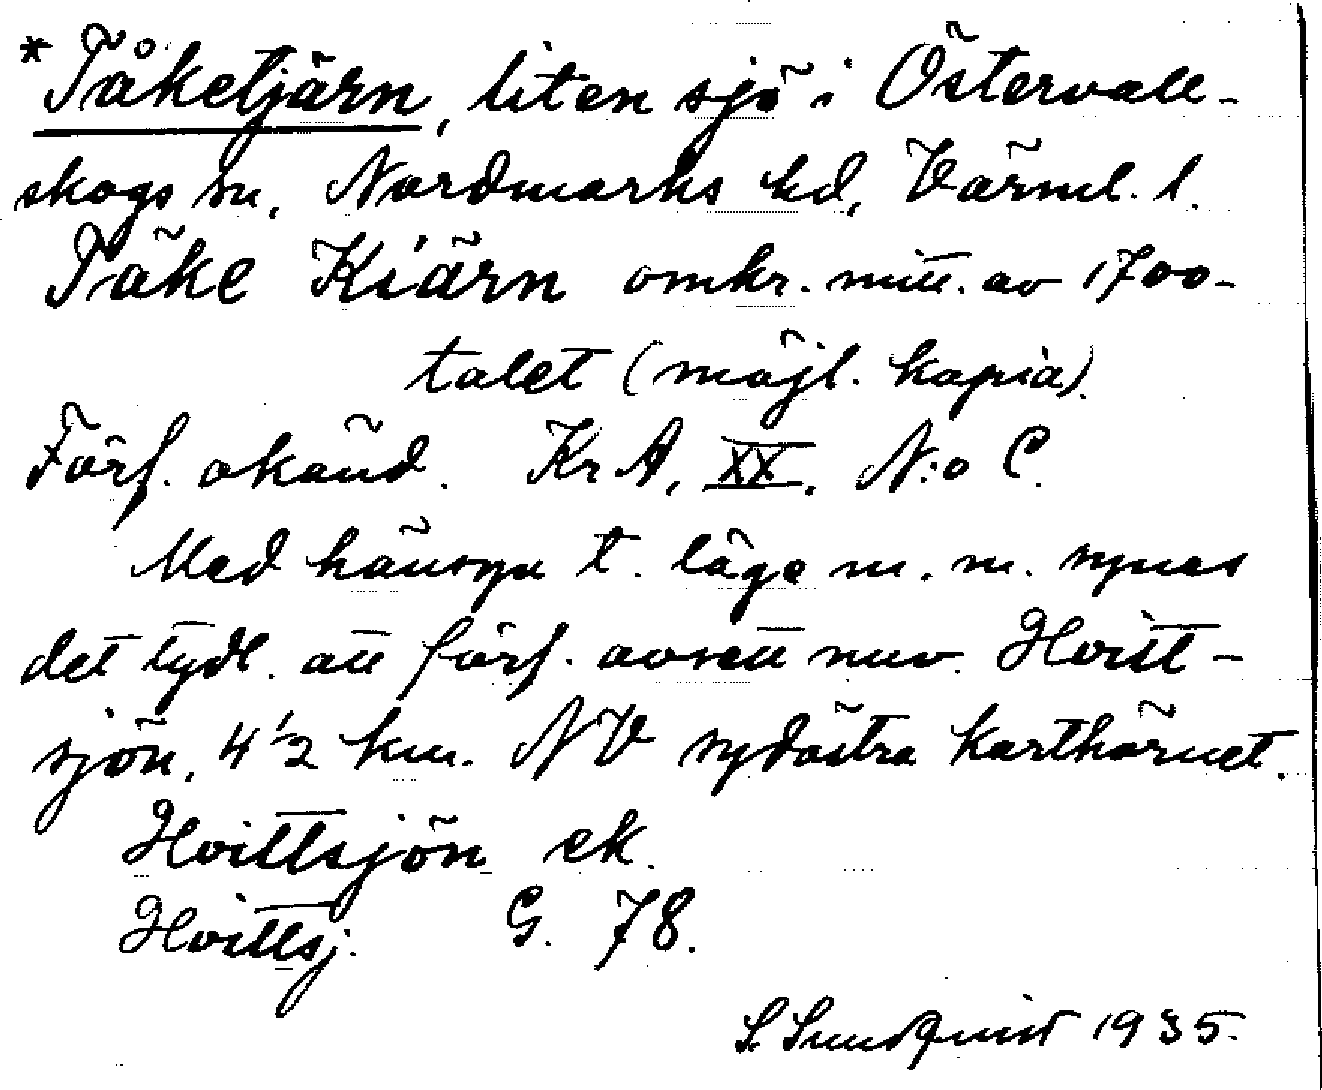 *Tåketjärn, liten sjö i Östervall-
skogs sn, Nordmarks hd, Värml. l.
Tåke Kiärn omkr. mitt. av 1700-
talet (möjl. kopia).
Förf. okänd. KrA, XX. N:o C.
Med hänsyn t. läge m. m. synes
det tydl. att förf. avsett nuv. Hvitt-
sjön, 4 1/2 km. NV sydöstra karthörnet.
Hvittsjön ek.
Hvittsj. G. 78.
S. Sundquist 1935.